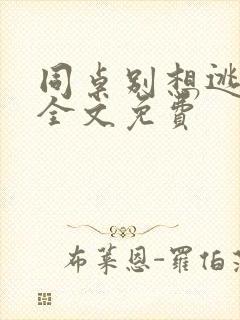 同桌别想逃
全文免费
布莱恩-羅伯